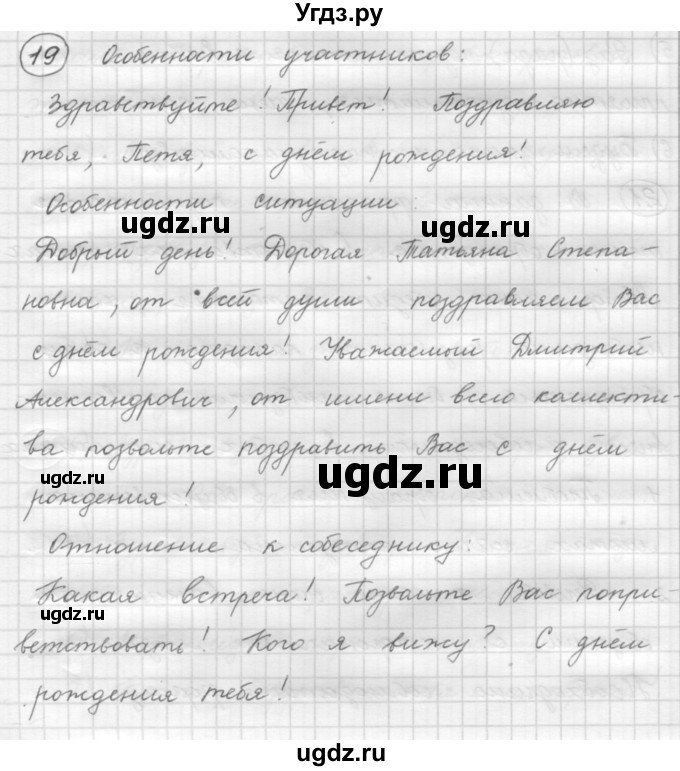 Угдз.ру
19 Особенности участников:
Здравствуйте! Привет! Поздравляю
тебя, Петя, с днём рождения!
Особенности ситуации:
ugdz.ru ugdz.ru
Добрый день! Дорогая Татьяна Степа-
новна, от всей души поздравляем Вас
с днём рождения! Уважаемый Дмитрий
Александрович, от имени всего коллекти-
ва позвольте поздравить Вас с днём
ugdz.ru ugdz.ru
рождения!
Отношение к собеседнику:
ugdz.ru
Какая встреча! Позвольте Вас попри-
ветствовать! Кого я вижу? С днём
рождения тебя!
ugdz.ru
ugdz.ru